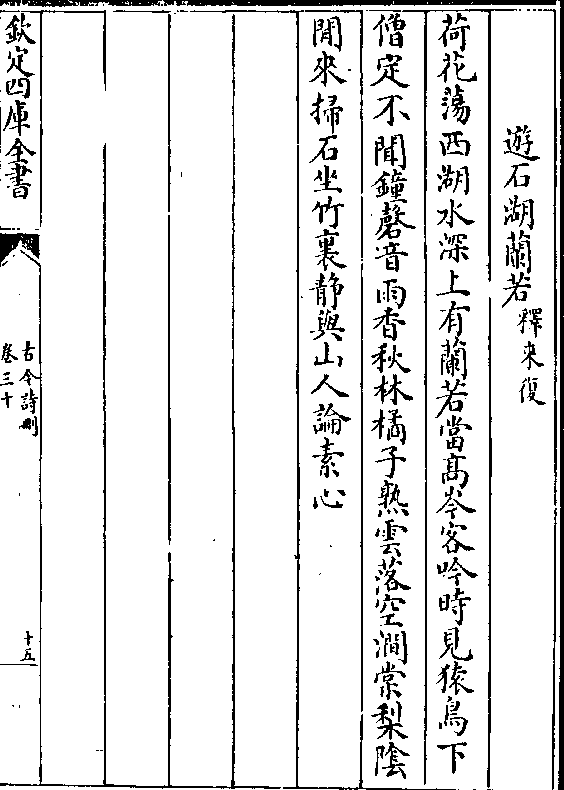 遊石湖蘭若釋来復
荷花蕩西湖水深上有蘭若當髙岑客吟時見猿鳥下
僧定不聞鐘磬音雨香秋林橘子熟雲落空澗棠梨陰
閒來掃石坐竹裏静與山人論素心
欽定四庫全書
古今詩刪
卷三十
十五